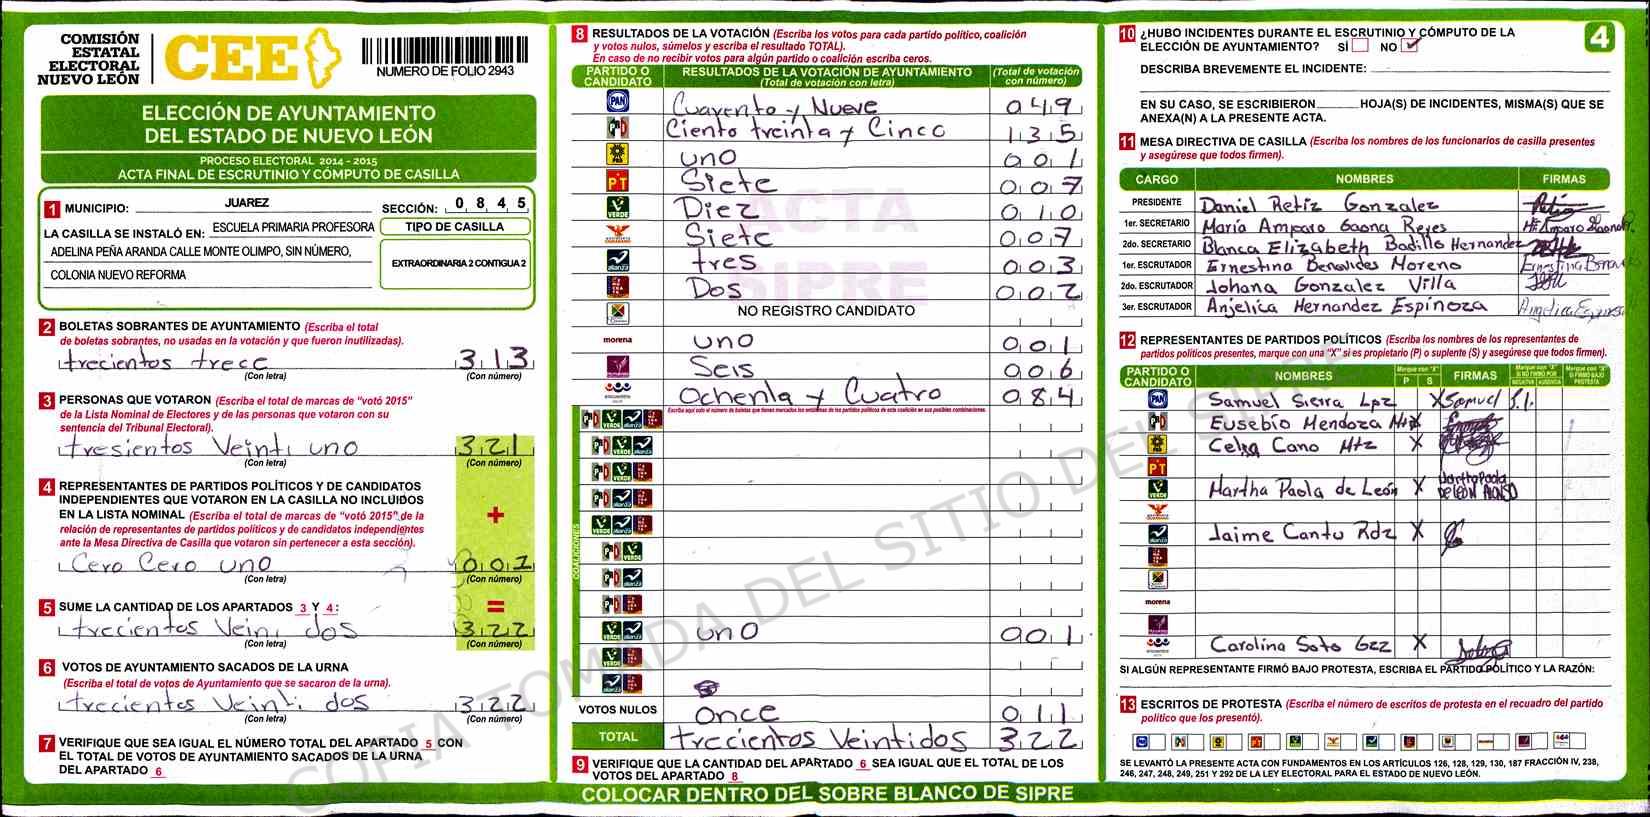 COMISIÓN
ESTATAL
ELECTORAL
NUEVO LEÓN
CEE
NUMERO DE FOLIO 2943
ELECCIÓN DE AYUNTAMIENTO
DEL ESTADO DE NUEVO LEÓN
PROCESO ELECTORAL 2014 - 2015
ACTA FINAL DE ESCRUTINIO Y CÓMPUTO DE CASILLA
1 MUNICIPIO: JUAREZ SECCIÓN: 0 8 4 5
LA CASILLA SE INSTALÓ EN: ESCUELA PRIMARIA PROFESORA
ADELINA PEÑA ARANDA CALLE MONTE OLIMPO, SIN NÚMERO,
COLONIA NUEVO REFORMA
TIPO DE CASILLA
EXTRAORDINARIA 2 CONTIGUA 2
2 BOLETAS SOBRANTES DE AYUNTAMIENTO (Escriba el total
de boletas sobrantes, no usadas en la votación y que fueron inutilizadas).
trecientos trece 313
(Con letra) (Con número)
3 PERSONAS QUE VOTARON (Escriba el total de marcas de "votó 2015"
de la Lista Nominal de Electores y de las personas que votaron con su
sentencia del Tribunal Electoral).
tresientos Veinti uno 321
(Con letra) (Con número)
4 REPRESENTANTES DE PARTIDOS POLÍTICOS Y DE CANDIDATOS
INDEPENDIENTES QUE VOTARON EN LA CASILLA NO INCLUIDOS
EN LA LISTA NOMINAL (Escriba el total de marcas de "votó 2015" de la
relación de representantes de partidos políticos y de candidatos independientes
ante la Mesa Directiva de Casilla que votaron sin pertenecer a esta sección).
+
Cero Cero uno 001
(Con letra) (Con número)
5 SUME LA CANTIDAD DE LOS APARTADOS 3 Y 4: =
trecientos Vein. dos 322
(Con letra) (Con número)
6 VOTOS DE AYUNTAMIENTO SACADOS DE LA URNA
(Escriba el total de votos de Ayuntamiento que se sacaron de la urna).
trecientos Veinti dos 322
(Con letra) (Con número)
7 VERIFIQUE QUE SEA IGUAL EL NÚMERO TOTAL DEL APARTADO 5 CON
EL TOTAL DE VOTOS DE AYUNTAMIENTO SACADOS DE LA URNA
DEL APARTADO 6
8 RESULTADOS DE LA VOTACIÓN (Escriba los votos para cada partido político, coalición
y votos nulos, súmelos y escriba el resultado TOTAL).
En caso de no recibir votos para algún partido o coalición escriba ceros.
PARTIDO O CANDIDATO RESULTADOS DE LA VOTACIÓN DE AYUNTAMIENTO (Total de votación con letra) (Total de votación con número)
PAN Cuarenta y Nueve 049
Ciento treinta y Cinco 135
PRD uno 001
PT Siete 007
VERDE Diez 010
Siete 007
alianza tres 003
Dos 002
NO REGISTRO CANDIDATO
morena uno 001
Seis 006
encuentro Ochenta y Cuatro 084
COALICIONES
Escriba aquí solo el número de boletas que tienen marcados los emblemas de los partidos políticos de esta coalición en sus posibles combinaciones.
VERDE alianza uno 001
VOTOS NULOS Once 011
TOTAL trecientos Veintidos 322
9 VERIFIQUE QUE LA CANTIDAD DEL APARTADO 6 SEA IGUAL QUE EL TOTAL DE LOS
VOTOS DEL APARTADO 8
COLOCAR DENTRO DEL SOBRE BLANCO DE SIPRE
ACTA
SIPRE
COPIA TOMADA DEL SITIO DEL SIPRE
10 ¿HUBO INCIDENTES DURANTE EL ESCRUTINIO Y CÓMPUTO DE LA
ELECCIÓN DE AYUNTAMIENTO? SÍ NO
4
DESCRIBA BREVEMENTE EL INCIDENTE:
EN SU CASO, SE ESCRIBIERON HOJA(S) DE INCIDENTES, MISMA(S) QUE SE
ANEXA(N) A LA PRESENTE ACTA.
11 MESA DIRECTIVA DE CASILLA (Escriba los nombres de los funcionarios de casilla presentes
y asegúrese que todos firmen).
CARGO NOMBRES FIRMAS
PRESIDENTE Daniel Retiz Gonzalez
1er. SECRETARIO Maria Amparo Gaona Reyes
2do. SECRETARIO Blanca Elizabeth Badillo Hernandez
1er. ESCRUTADOR Ernestina Benavides Moreno
2do. ESCRUTADOR Johana Gonzalez Villa
3er. ESCRUTADOR Anjelica Hernandez Espinoza
12 REPRESENTANTES DE PARTIDOS POLÍTICOS (Escriba los nombres de los representantes de
partidos políticos presentes, marque con una "X" si es propietario (P) o suplente (S) y asegúrese que todos firmen).
PARTIDO O CANDIDATO NOMBRES Marque con "X" P S FIRMAS Marque con "X" SI NO FIRMÓ POR NEGATIVA AUSENCIA Marque con "X" SI FIRMÓ BAJO PROTESTA
PAN Samuel Sierra Lpz X Samuel S.L.
Eusebio Mendoza Mtz X
PRD Celia Cano Mtz X
PT
VERDE Martha Paola de León X Martha Paola DE LEON ALONSO
alianza Jaime Cantu Rdz X
morena
encuentro Carolina Soto Gzz X
SI ALGÚN REPRESENTANTE FIRMÓ BAJO PROTESTA, ESCRIBA EL PARTIDO POLÍTICO Y LA RAZÓN:
13 ESCRITOS DE PROTESTA (Escriba el número de escritos de protesta en el recuadro del partido
político que los presentó).
SE LEVANTÓ LA PRESENTE ACTA CON FUNDAMENTOS EN LOS ARTÍCULOS 126, 128, 129, 130, 187 FRACCIÓN IV, 238,
246, 247, 248, 249, 251 Y 292 DE LA LEY ELECTORAL PARA EL ESTADO DE NUEVO LEÓN.